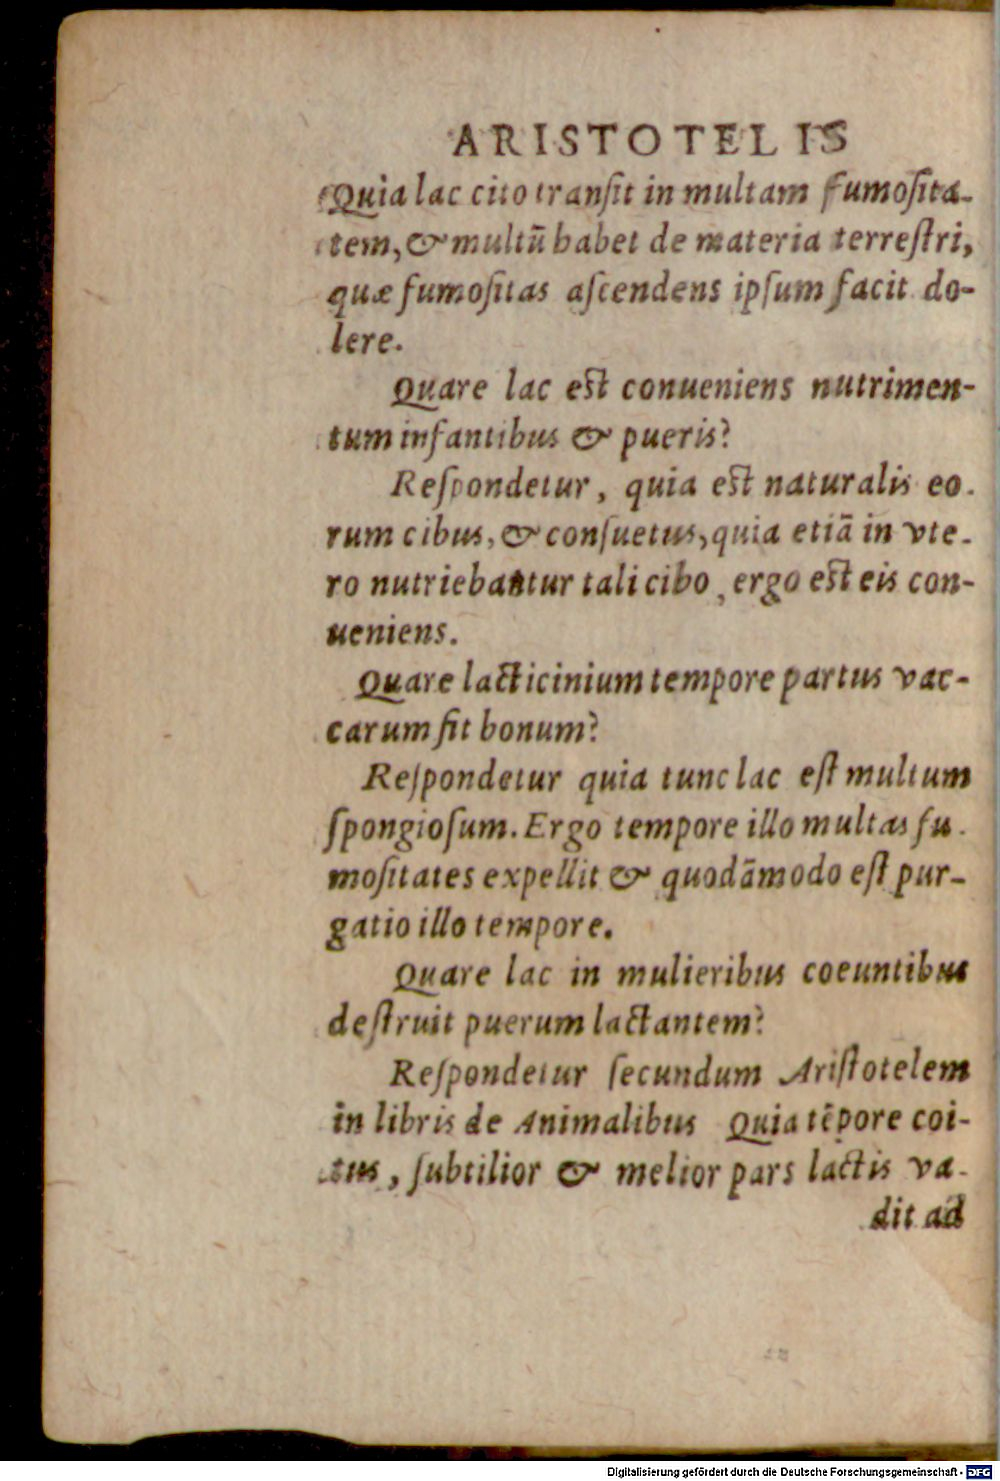 ARISTOTELIS
Quia lac cito tranſit in multam fumoſita-
tem, & multũ habet de materia terreſtri,
quæ fumoſitas aſcendens ipſum facit do-
lere.
Quare lac eſt conueniens nutrimen-
tum infantibus & pueris?
Reſpondetur, quia eſt naturalis eo-
rum cibus, & conſuetus, quia etiã in vte-
ro nutriebantur tali cibo, ergo eſt eis con-
ueniens.
Quare lacticinium tempore partus vac-
carum fit bonum?
Reſpondetur quia tunc lac eſt multum
ſpongioſum. Ergo tempore illo multas fu-
moſitates expellit & quodãmodo eſt pur-
gatio illo tempore.
Quare lac in mulieribus coeuntibus
deſtruit puerum lactantem?
Reſpondetur ſecundum Ariſtotelem
in libris de Animalibus Quia tẽpore coi-
tus, ſubtilior & melior pars lactis va-
dit ad
Digitalisierung gefördert durch die Deutsche Forschungsgemeinschaft - DFG